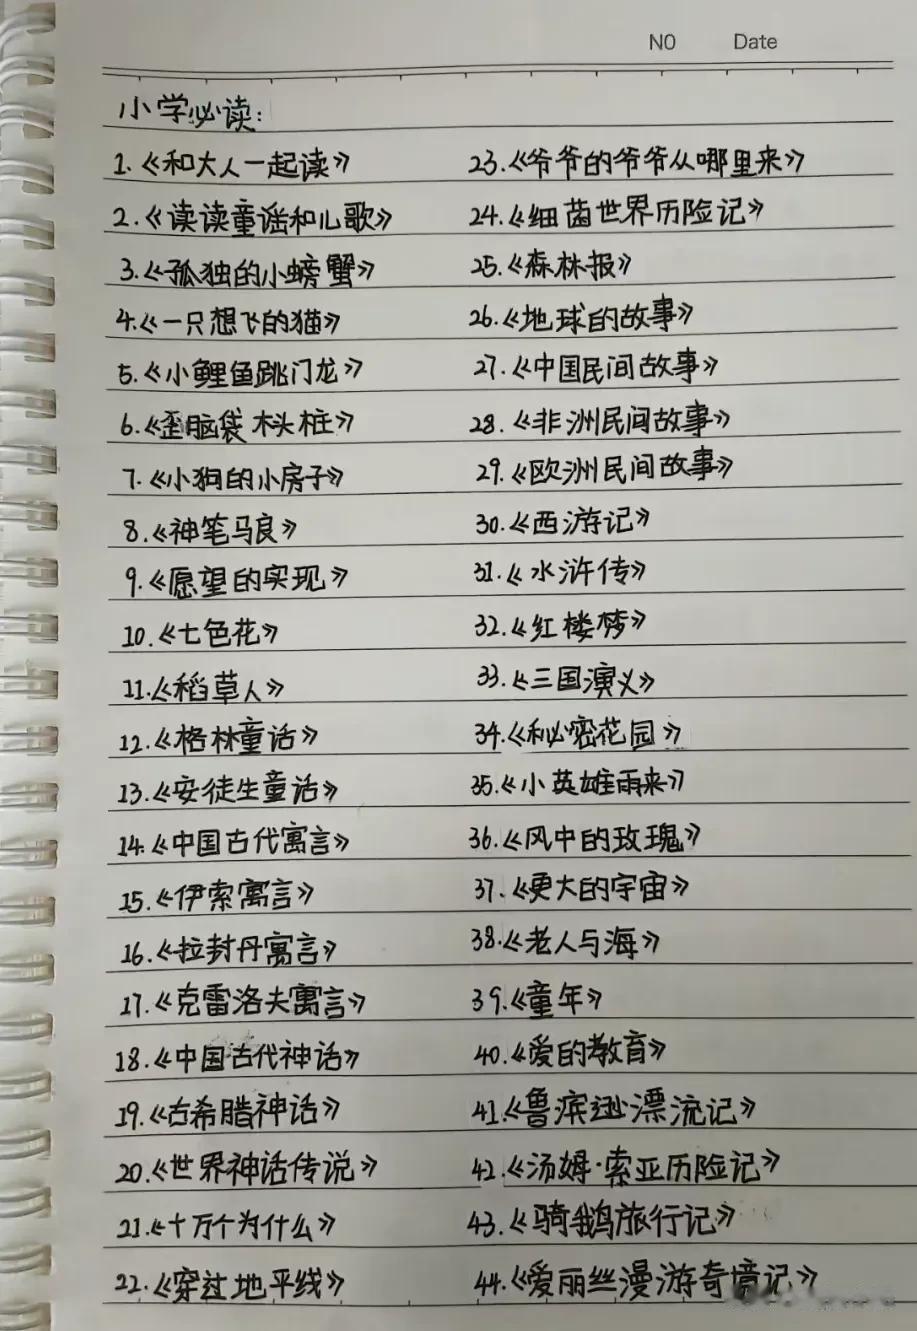 NO Date
小学必读:
1.《和大人一起读》
2.《读读童谣和儿歌》
3.《孤独的小螃蟹》
4.《一只想飞的猫》
5.《小鲤鱼跳门龙》
6.《歪脑袋木头桩》
7.《小狗的小房子》
8.《神笔马良》
9.《愿望的实现》
10.《七色花》
11.《稻草人》
12.《格林童话》
13.《安徒生童话》
14.《中国古代寓言》
15.《伊索寓言》
16.《拉封丹寓言》
17.《克雷洛夫寓言》
18.《中国古代神话》
19.《古希腊神话》
20.《世界神话传说》
21.《十万个为什么》
22.《穿过地平线》
23.《爷爷的爷爷从哪里来》
24.《细菌世界历险记》
25.《森林报》
26.《地球的故事》
27.《中国民间故事》
28.《非洲民间故事》
29.《欧洲民间故事》
30.《西游记》
31.《水浒传》
32.《红楼梦》
33.《三国演义》
34.《秘密花园》
35.《小英雄雨来》
36.《风中的玫瑰》
37.《更大的宇宙》
38.《老人与海》
39.《童年》
40.《爱的教育》
41.《鲁滨逊漂流记》
42.《汤姆·索亚历险记》
43.《骑鹅旅行记》
44.《爱丽丝漫游奇境记》